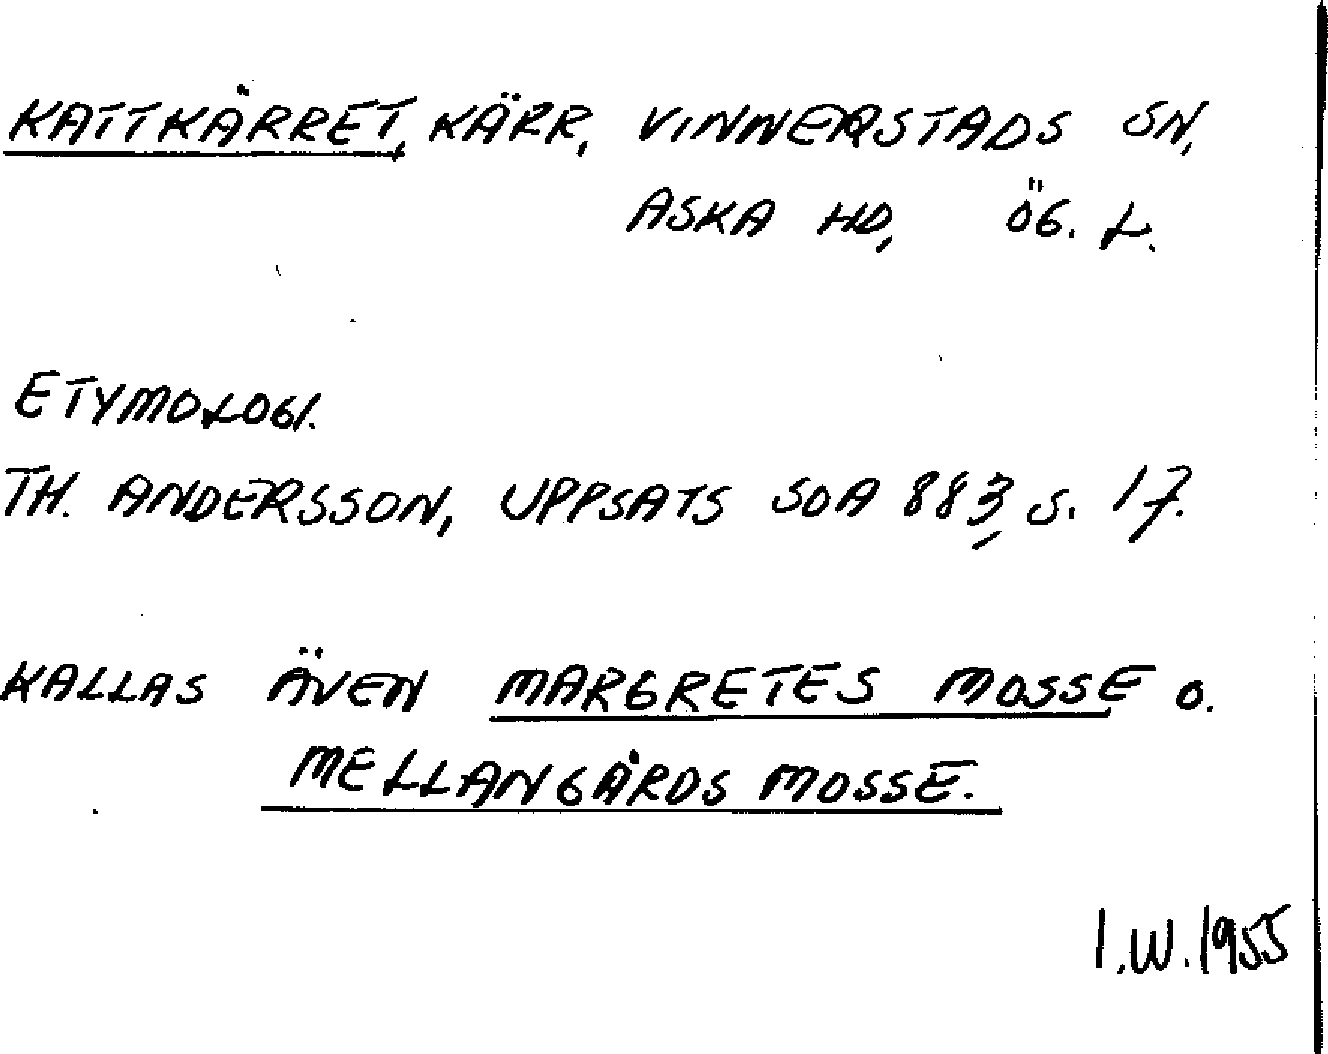 KATTKÄRRET, KÄRR, VINNERSTADS SN,
ASKA HD, ÖG. L.
ETYMOLOGI.
TH. ANDERSSON, UPPSATS SOA 883, S. 17.
KALLAS ÄVEN MARGRETES MOSSE O.
MELLANGÅRDS MOSSE.
I.W. 1955